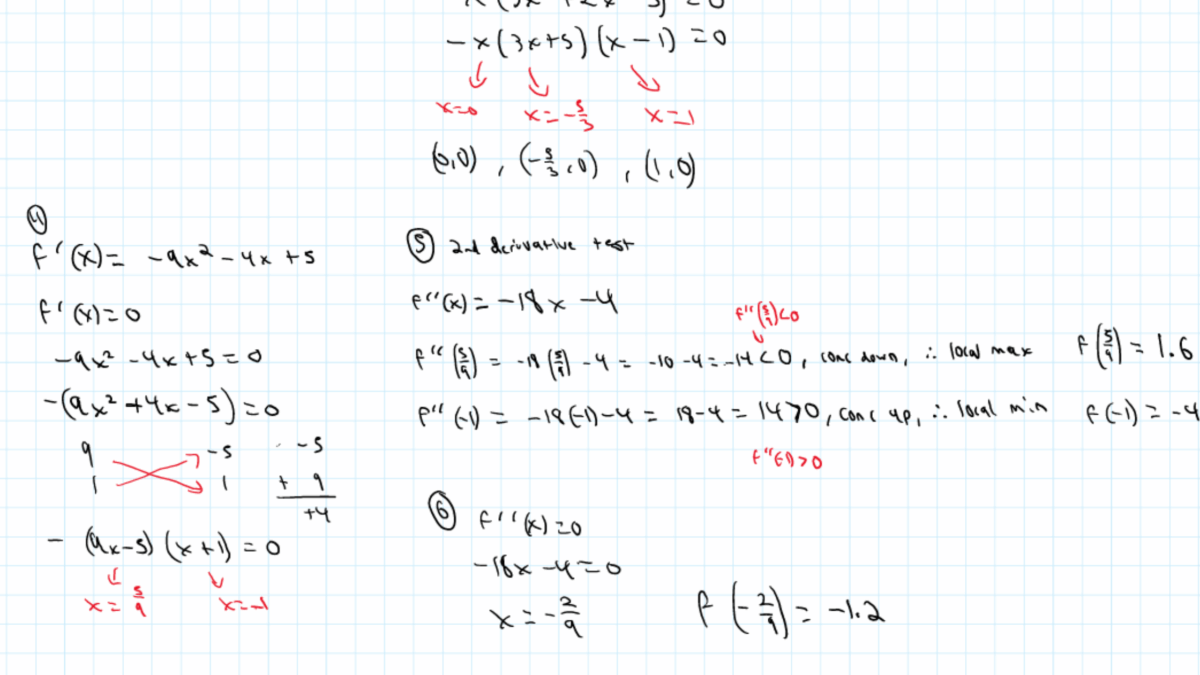 -x(3x+5)(x-1)=0
x=0 x=-5/3 x=1
(0,0), (-5/3,0), (1,0)
④
f'(x)= -9x²-4x+5
f'(x)=0
-9x²-4x+5=0
-(9x²+4x-5)=0
9 -5 -5
1 1 + 9
+4
-(9x-5)(x+1)=0
x=5/9 x=-1
⑤ 2nd derivative test
f''(x)=-18x-4
f''(5/9)<0
f''(5/9) = -18(5/9)-4 = -10-4=-14<0, conc down, ∴ local max f(5/9)=1.6
f''(-1) = -18(-1)-4 = 18-4=14>0, conc up, ∴ local min f(-1)=-4
f''(-1)>0
⑥ f''(x)=0
-18x-4=0
x=-2/9 f(-2/9)=-1.2